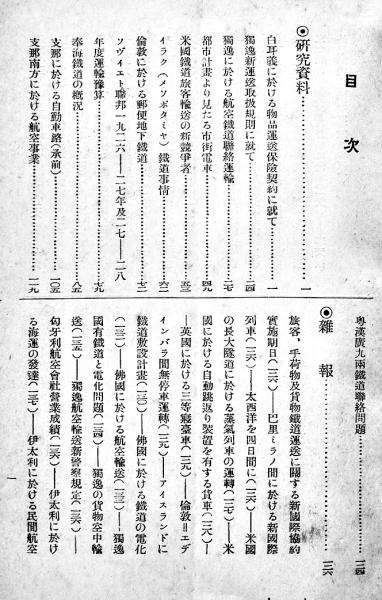 目次
◎研究資料……一
白耳義に於ける物品運送保險契約に就て……一
獨逸新運送取扱規則に就て……一四
獨逸に於ける航空鐵道聯絡運輸……二七
都市計畫より見たる市街電車……四九
米國鐵道旅客輸送の新競爭者……五三
イラク(メソポタミヤ)鐵道事情……六二
倫敦に於ける郵便地下鐵道……七二
ソヴイエト聯邦一九二六—二七年及二七—二八
年度運輸豫算……七九
奉海鐵道の概況……八五
支那に於ける自動車路(承前)……一〇五
支那南方に於ける航空事業……一一九
粤漢廣九兩鐵道聯絡問題……一二四
◎雜報……一二六
旅客、手荷物及貨物鐵道運送に關する新國際協約
實施期日(一二六)—巴里ミラノ間に於ける新國際
列車(一二六)—太西洋を四日間に(一二六)—米國
の長大隧道に於ける蒸氣列車の運轉(一二七)—米
國に於ける自動跳返り裝置を有する貨車(一二八)
—英國に於ける三等寢臺車(一二九)—倫敦＝エデ
インバラ間無停車運轉(一二九)—アイスランドに
鐵道敷設計畫(一三一)—佛國に於ける鐵道の電化
(一三一)—佛國に於ける航空輸送(一三三)—獨逸
國有鐵道と電化問題(一三四)—獨逸の貨物空中輸
送(一三五)—獨逸航空輸送新警察規定(一三六)—
匈牙利航空會社營業成績(一三六)—伊太利に於け
る海運の發達(一三七)—伊太利に於ける民間航空
一